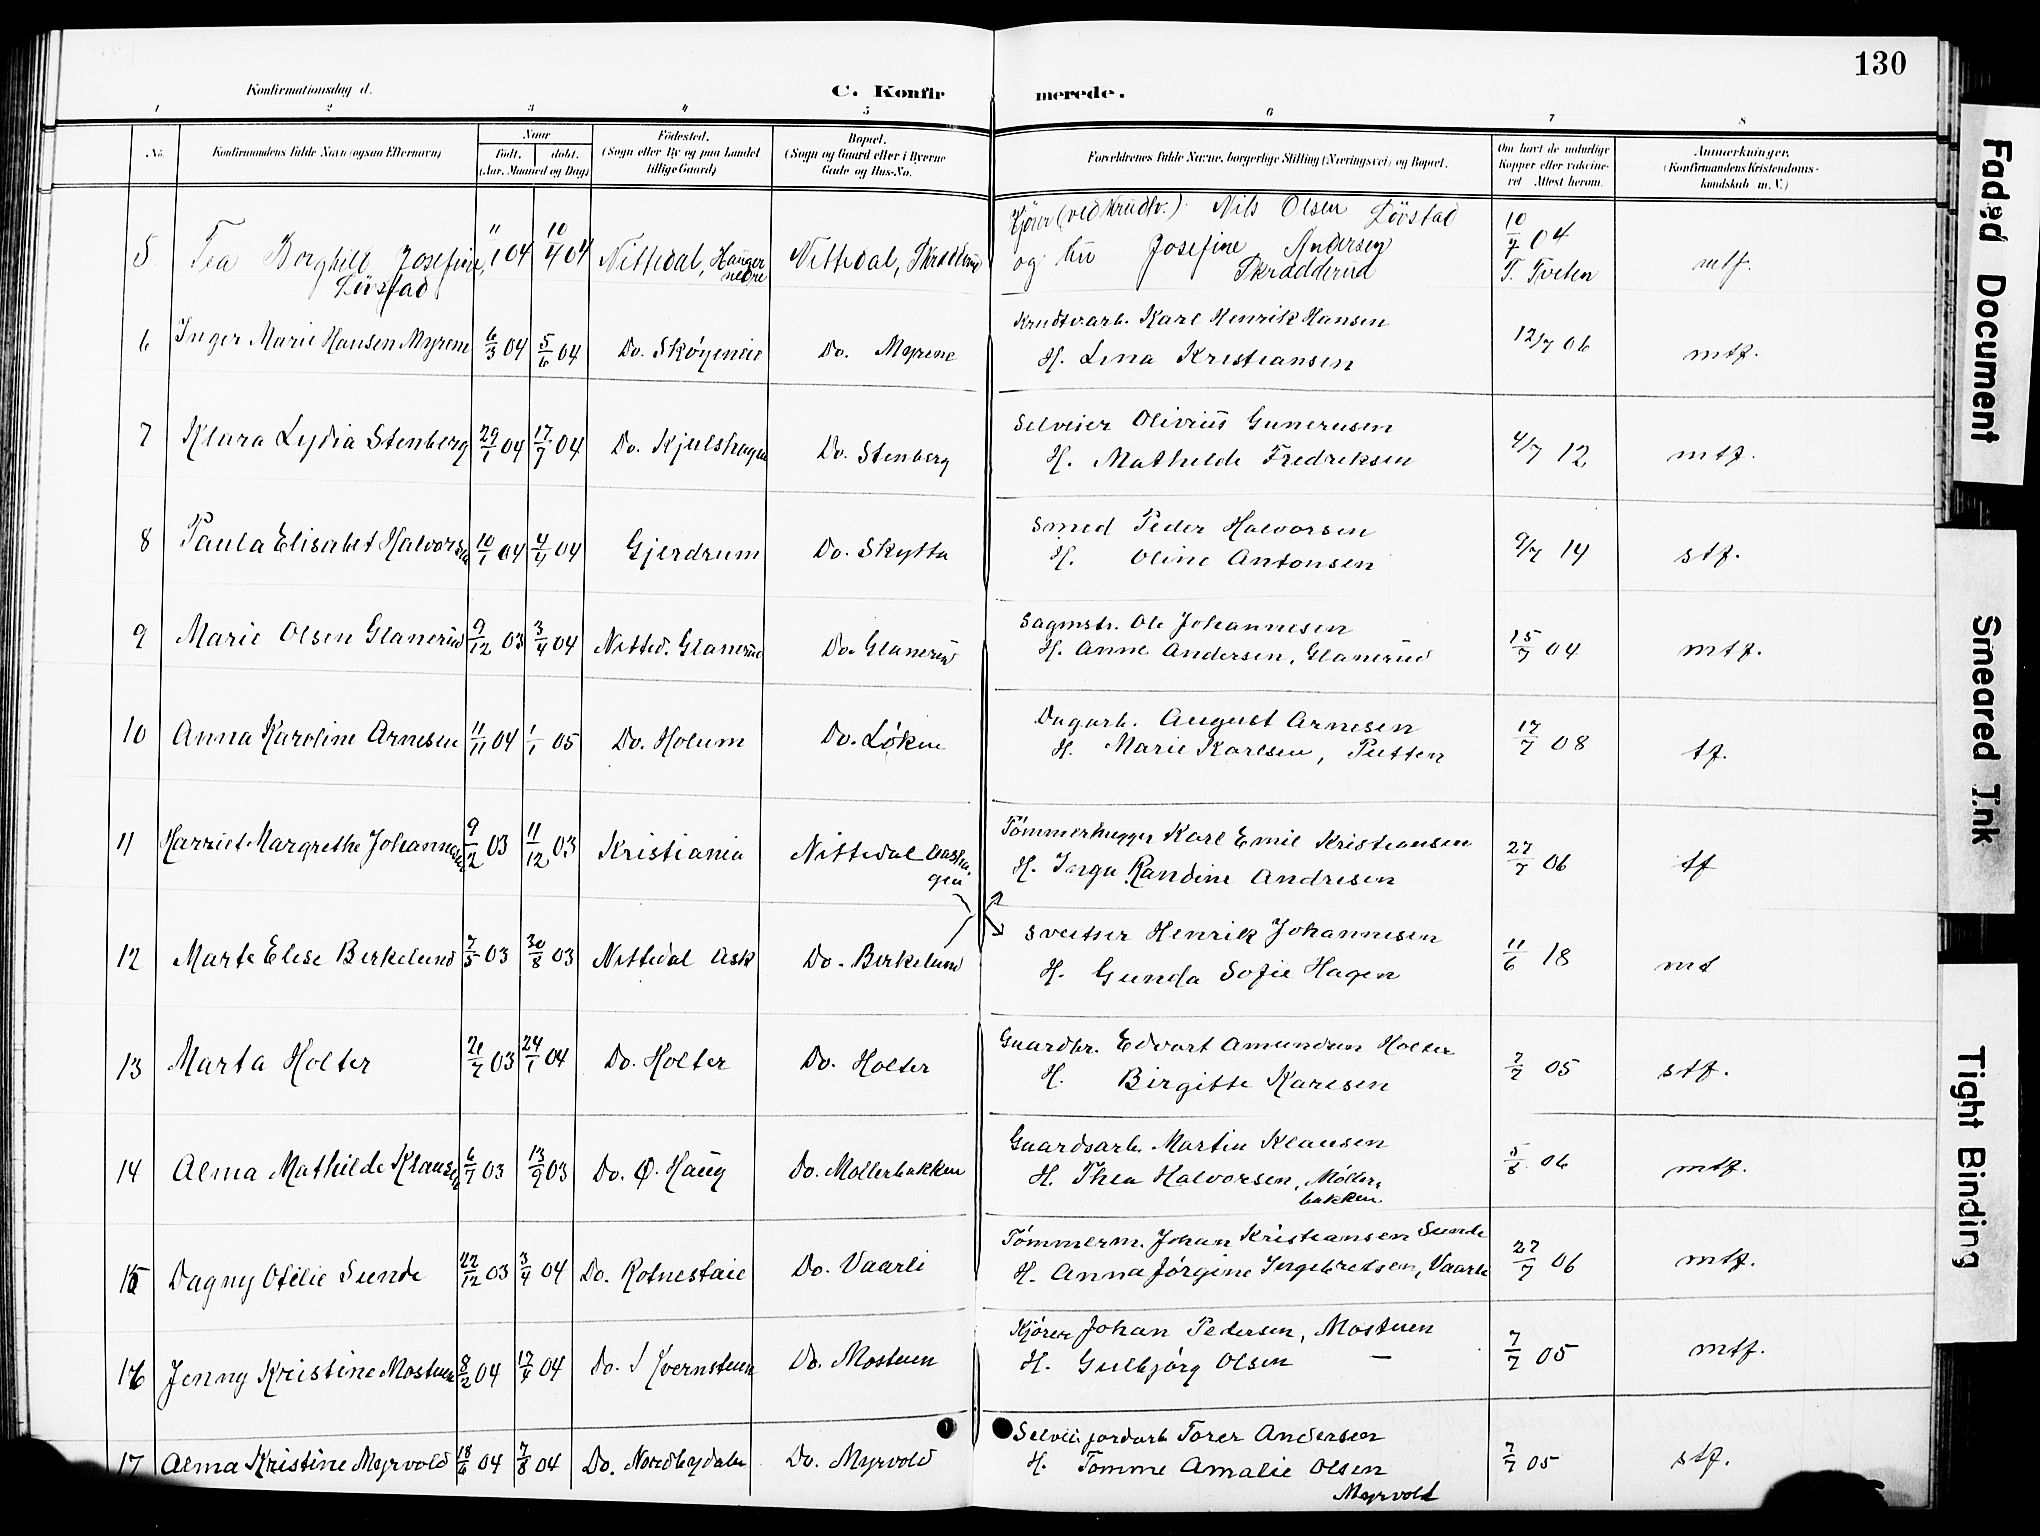 130
Konfirmationsdag d.
C. Konfir merede.
1 2 3 4 5 6 7 8
No. Konfirmandens fulde Navn (ogsaa Efternavn) Naar Født. døbt. (Aar, Maaned og Dag) Fødested. (Sogn eller By og paa Landet tillige Gaard) Bopæl. (Sogn og Gaard eller i Byerne Gade og Hus-No. Forældrenes fulde Navne, borgerlige Stilling (Næringsvei) og Bopæl. Om havt de naturlige Kopper eller vakcineret. Attest herom. Anmærkninger. (Konfirmandens Kristendomskundskab m. V.)
5 Tea Borghild Josefine 11/1 04 10/4 04 Nittedal, Hauger Nittedal, Skradderud Kjører (ved Krudtv.) Nils Olsen Lövstad 10/7 04 mtf.
Lövstad nedre og hu Josefine Andersen T. Tveten
Skradderud
6 Inger Marie Hansen Myrene 6/3 04 5/6 04 Do. Skøyeneie Do. Myrene Krudtv.arb. Karl Henrik Hansen 12/7 06 mtf.
H. Lina Kristiansen
7 Klara Lydia Stenberg 29/1 04 17/7 04 Do. Kjulshagen Do. Stenberg Selveier Olivius Gunerusen 4/7 12 mtf.
H. Mathilde Fredriksen
8 Paula Elisabet Halvorsen 10/1 04 4/4 04 Gjerdrum Do. Skytta Smed Peder Halvorsen 9/7 14 stf.
H. Oline Antonsen
9 Marie Olsen Glanerud 9/12 03 3/4 04 Nitted. Glanerud Do. Glanerud Sagmstr. Ole Johannesen 15/7 04 mtf.
H. Anne Andersen, Glanerud
10 Anna Karoline Arnesen 11/11 04 1/1 05 Do. Holum Do. Løken Dagarb. August Arnesen 17/7 08 tf.
H. Marie Karlsen, Putten
11 Harriet Margrethe Johannesen 9/2 03 11/12 03 Kristiania Nittedal Aasha- Tömmerhugger Karl Emil Kristiansen 27/7 06 tf
gen H. Inga Randine Andresen
12 Marte Elise Birkelund 7/5 03 30/8 03 Nittedal Ask Do. Birkelund Sveitser Henrik Johannesen 11/6 18 mt
H. Gunda Sofie Hagen
13 Marta Holter 21/7 03 24/1 04 Do. Holter Do. Holter Gaardbr. Edvart Amundsen Holter 7/7 05 stf.
H. Birgitte Karlsen
14 Alma Mathilde Klausen 6/7 03 13/9 03 Do. Ø. Haug Do. Møllerbakken Gaardsarb. Martin Klausen 5/8 06 mtf.
H. Thea Halvorsen, Møller-
bakken.
15 Dagny Otilie Sunde 22/12 03 3/4 04 Do. Rotneseie Do. Vaarli Tømmerm. Johan Kristiansen Sunde 27/7 06 mtf.
H. Anna Jørgine Ingebretsen, Vaarli
16 Jenny Kristine Mostuen 8/2 04 17/4 04 Do. Kvernstuen Do. Mostuen Kjører Johan Pedersen, Mostuen 7/7 05 mtf.
H. Gulbjørg Olsen —
17 Alma Kristine Myrvold 18/6 04 7/8 04 Do. Nordbydalen Do. Myrvold Selvei. jordarb Torer Andersen 7/7 05 stf.
H. Tomme Amalie Olsen
Myrvold
Faded Document
Smeared Ink
Tight Binding